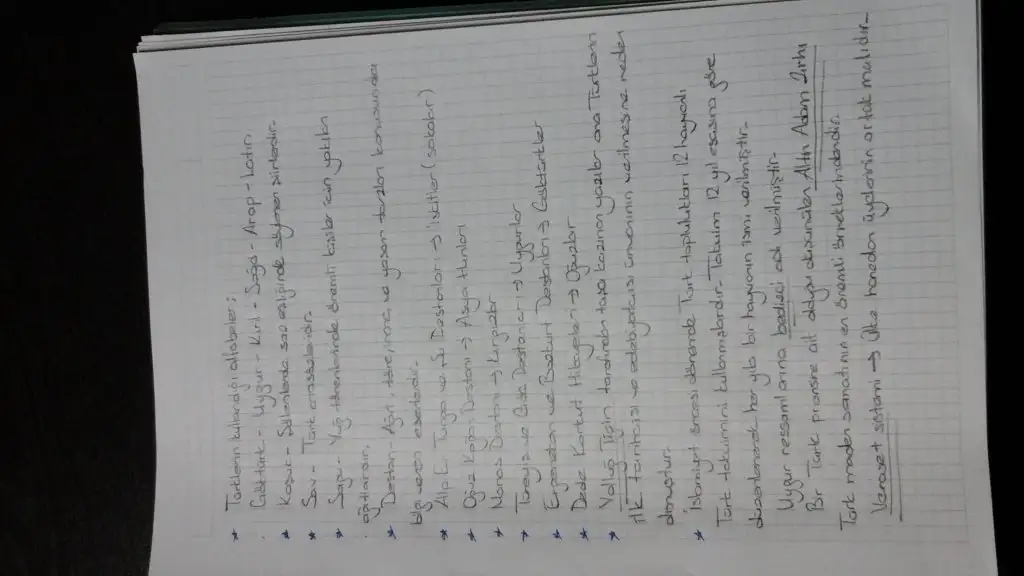 * Türklerin kullandığı alfabeler;
Göktürk - Uygur - Kiril - Soğd - Arap - Latin
* Koşuk - Sığırlarda saz eşliğinde söylenen şiirlerdir.
* Sav - Türk atasözleridir.
* Sagu - Yuğ törenlerinde önemli kişiler için yakılan
ağıtlardır.
* Destan - Ayrı, töre, inanç ve yaşam tarzları konusunda
bilgi veren eserlerdir.
* Alp Er Tunga ve Şu Destanları → İskitler (Sakalar)
* Oğuz Kağan Destanı → Asya Hunları
* Manas Destanı → Kırgızlar
* Türeyiş ve Göç Destanları → Uygurlar
* Ergenekon ve Bozkurt Destanları → Göktürkler
* Dede Korkut Hikayeleri → Oğuzlar
* Yolluğ Tigin tarafından taşa kazınan yazılar ona Türklerin
ilk tarihçisi ve edebiyatçısı ünvanının verilmesine neden
olmuştur.
* İslamiyet öncesi dönemde Türk toplulukları 12 hayvanlı
Türk takvimini kullanmışlardır. Takvim 12 yıl esasına göre
düzenlenerek her yıla bir hayvanın ismi verilmiştir.
Uygur ressamlarına bedizci adı verilmiştir.
Bir Türk prensine ait olduğu düşünülen Altın Adam Zırhı
Türk maden sanatının en önemli örneklerindendir.
Veraset sistemi → Ülke hanedan üyelerinin ortak malıdır.